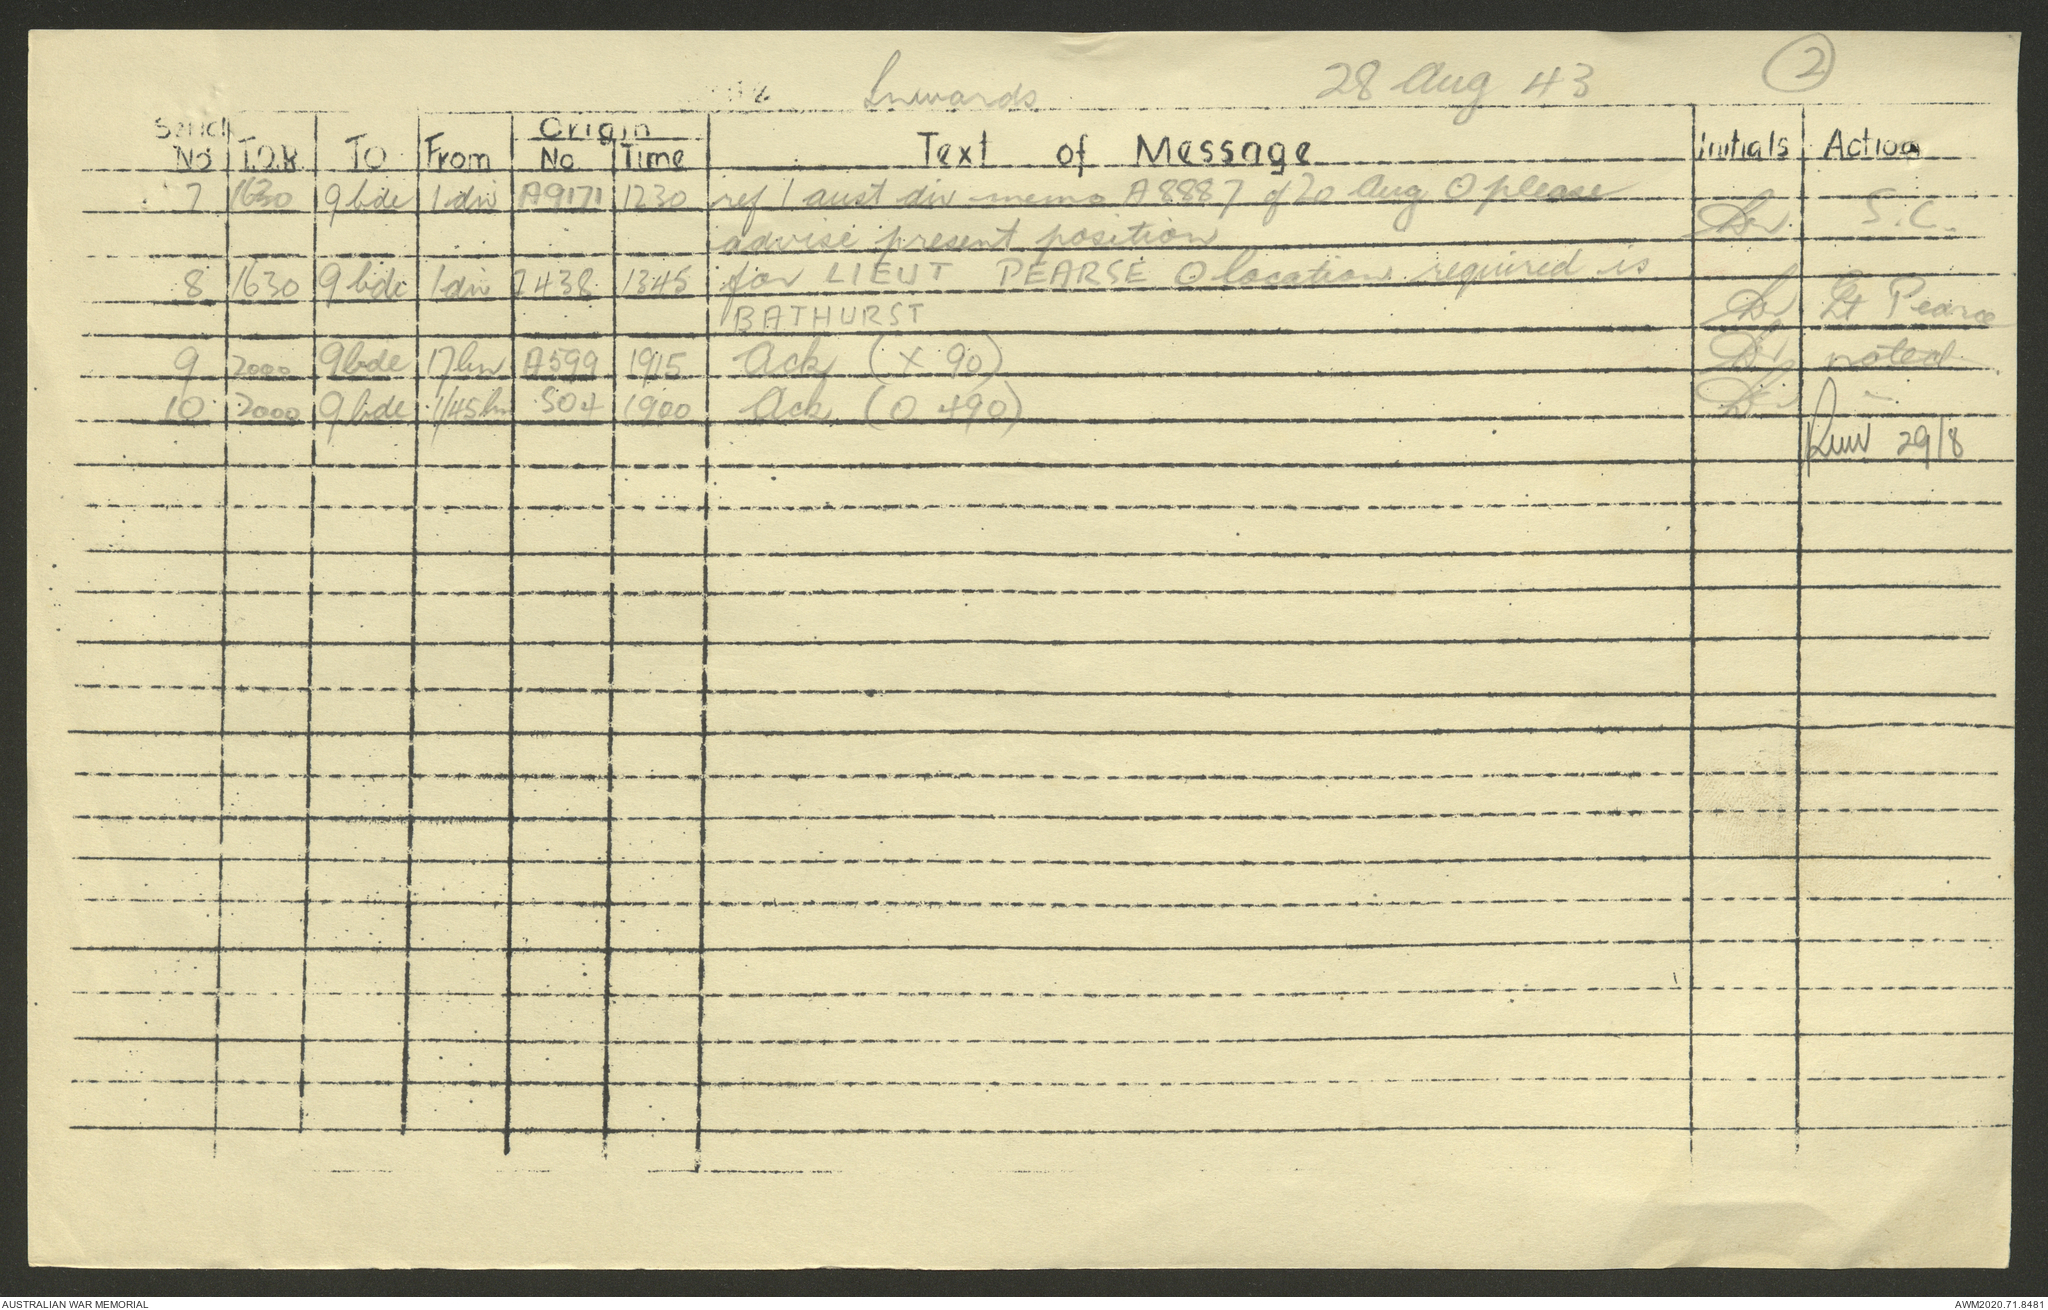 Inwards 28 Aug 43 2
Serial No T.O.R. To From Origin No Time Text of Message Initials Action
7 1630 9 bde 1 div A9171 1230 ref 1 aust div memo A8887 of 20 Aug O please
advise present position S.C.
8 1630 9 bde 1 div 438 1345 for LIEUT PEARSE O location required is
BATHURST Lt Pearce
9 2000 9 bde 17 bn A599 1915 Ack (X 90) noted
10 2000 9 bde 1/45 bn S04 1900 Ack (O 490)
29/8
AUSTRALIAN WAR MEMORIAL AWM2020.71.8481